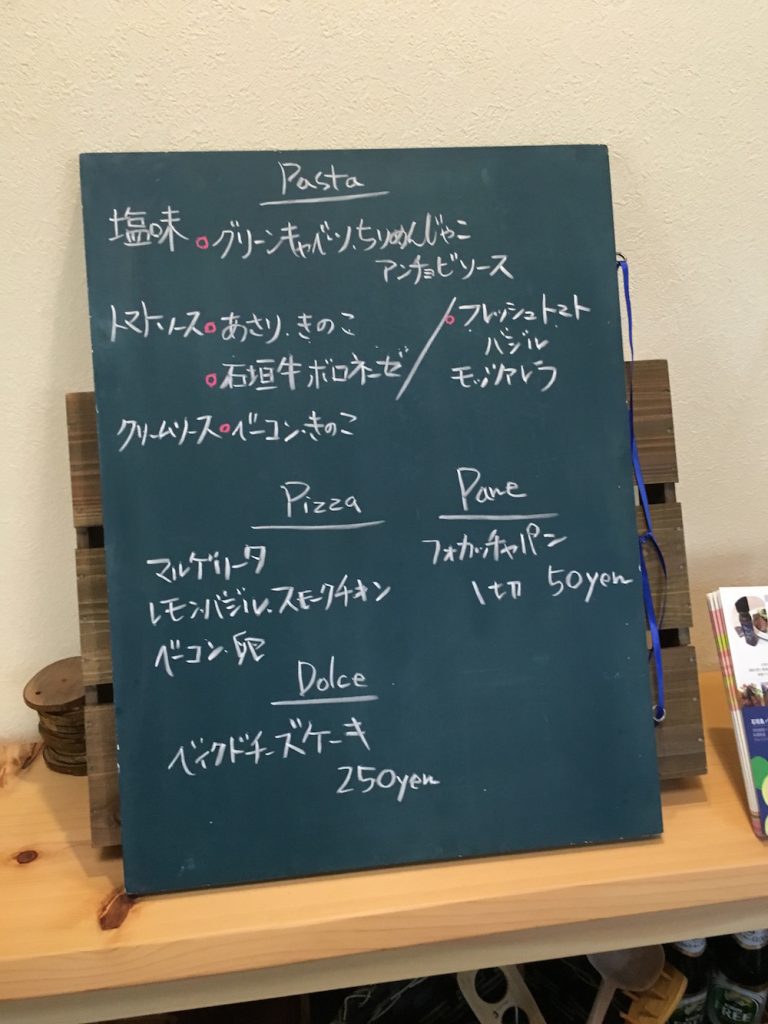 Pasta
塩味 グリーンキャベツ.ちりめんじゃこ
アンチョビソース
トマトソース あさり.きのこ
石垣牛ボロネーゼ
フレッシュトマト
バジル
モッツアレラ
クリームソース ベーコン.きのこ
Pizza
マルゲリータ
レモン.バジル.スモークチキン
ベーコン.卵
Pane
フォカッチャパン
1切 50yen
Dolce
ベイクドチーズケーキ
250yen
FREE